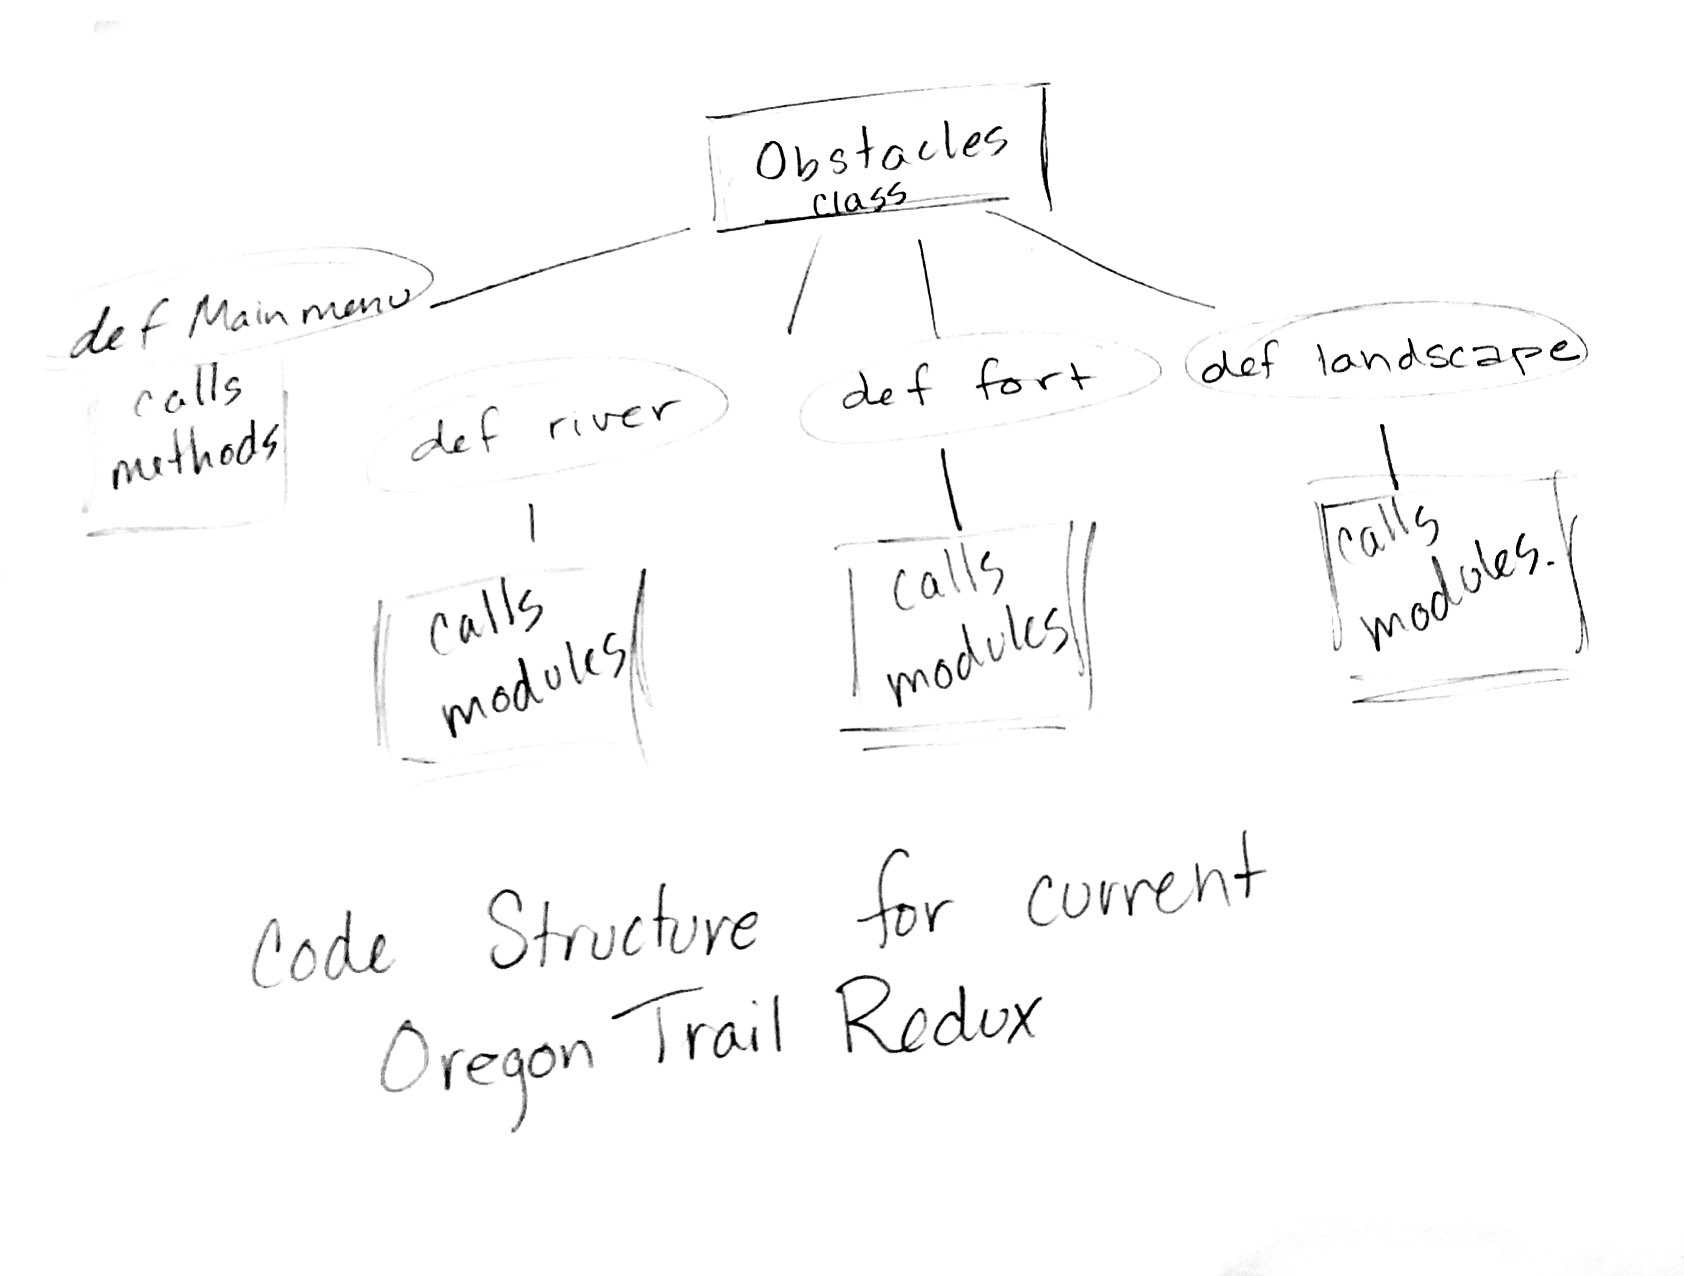 Obstacles
class
def Main menu
calls
methods
def river
calls
modules
def fort
calls
modules
def landscape
calls
modules.
Code Structure for current
Oregon Trail Redux